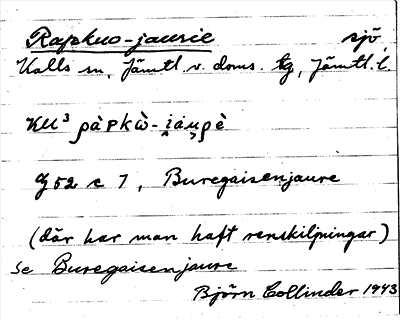 Rapkuo-jaurie sjö
Kalls sn, Jämtl. v. doms. tg, Jämtl. l.
KU³ ρàᴘkὼ-i̯áu̯ρè
G 52 c 7, Buregaisenjaure
(där har man haft renskiljningar)
Se Buregaisenjaure
Björn Collinder 1943